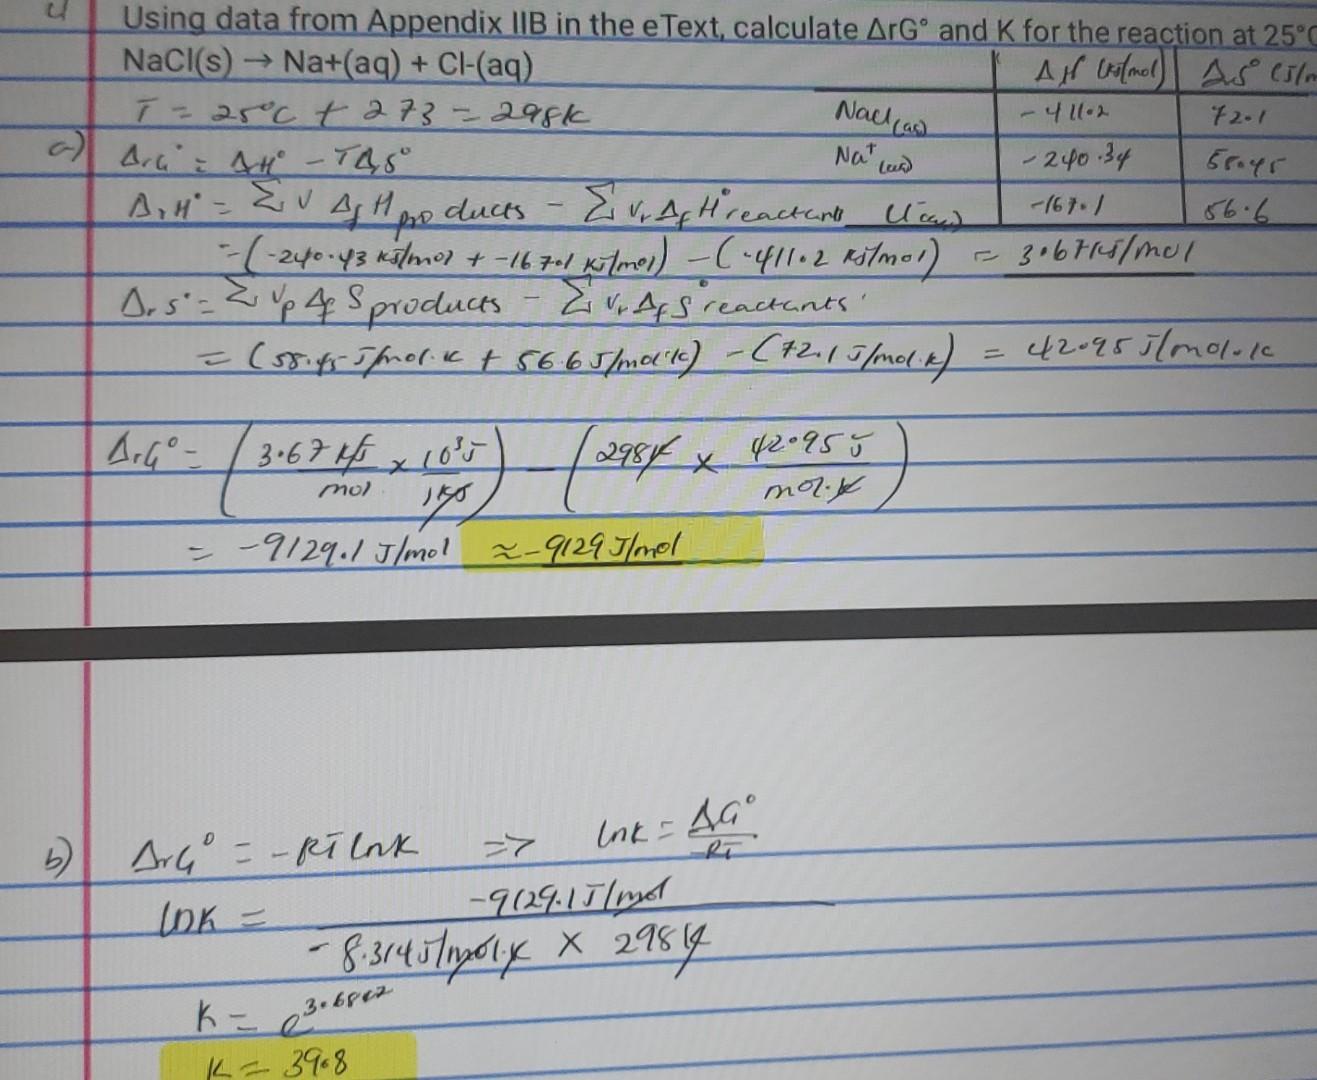 Using data from Appendix IIB in the eText, calculate ΔrG° and K for the reaction at 25°C
NaCl(s) → Na+(aq) + Cl-(aq)
ΔH° (kJ/mol) ΔS° (J/m
T = 25°C + 273 = 298K
NaCl(aq) -411.2 72.1
a) ΔrG° = ΔH° - TΔS°
Na⁺(aq) -240.34 58.45
ΔrH° = Σ ν ΔfH products - Σ νr ΔfH° reactants Cl⁻(aq) -167.1 56.6
= (-240.43 kJ/mol + -167.1 kJ/mol) - (-411.2 kJ/mol) = 3.67 kJ/mol
ΔrS° = Σ νp ΔfS products - Σ νr ΔfS° reactants
= (58.45 J/mol.K + 56.6 J/mol.K) - (72.1 J/mol.K) = 42.95 J/mol.K
ΔrG° = (3.67 kJ/mol × 10³J/1kJ) - (298K × 42.95 J/mol.K)
= -9129.1 J/mol ≈ -9129 J/mol
b) ΔrG° = -RT lnK => lnK = ΔG°/-RT
lnK = -9129.1 J/mol / -8.314 J/mol.K × 298K
K = e^3.6847
K = 39.8